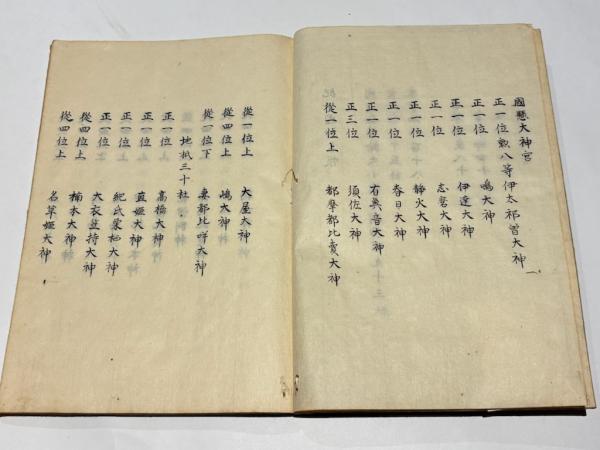 國懸大神宮
正一位勲八等伊太祁曽大神
正一位 鳴大神
正一位 伊達大神
正一位 志磨大神
正一位 静火大神
正一位 春日大神
正一位 有眞音大神
正三位 須佐大神
從一位上 都摩都比賣大神
從一位上 大屋大神
從四位上 嶋大神
從四位下 妻都比咩大神
地祇三十社
正一位 高橋大神
正一位上 直姫大神
正一位上 紀氏栗栖大神
從四位上 大衣笠持大神
從四位上 楠本大神
從四位上 名草姫大神